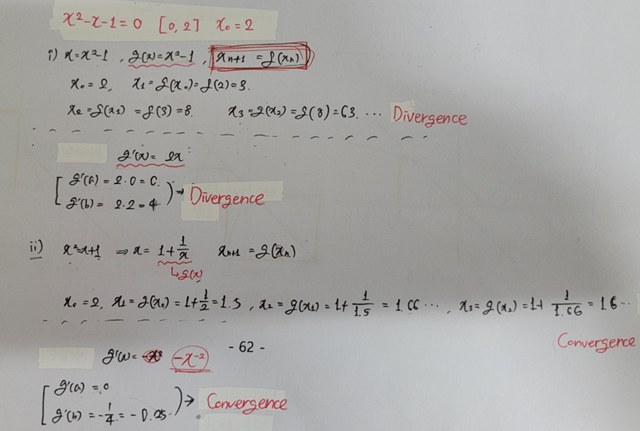 x²-x-1=0 [0, 2] x₀=2
i) x=x²-1, g(x)=x²-1, xₙ₊₁ = g(xₙ)
x₀=2, x₁=g(x₀)=g(2)=3.
x₂=g(x₁)=g(3)=8. x₃=g(x₂)=g(8)=63. ⋯ Divergence
g'(x)=2x
g'(a)=2·0=0.
g'(b)=2·2=4 → Divergence
ii) x²=x+1 ⇒ x= 1+1/x xₙ₊₁ = g(xₙ)
↳g(x)
x₀=2, x₁=g(x₀)=1+1/2=1.5, x₂=g(x₁)=1+1/1.5=1.66⋯, x₃=g(x₂)=1+1/1.66=1.6⋯
Convergence
- 62 -
g'(x)= -x⁻²
g'(a)=0
g'(b)=-1/4=-0.25 → Convergence